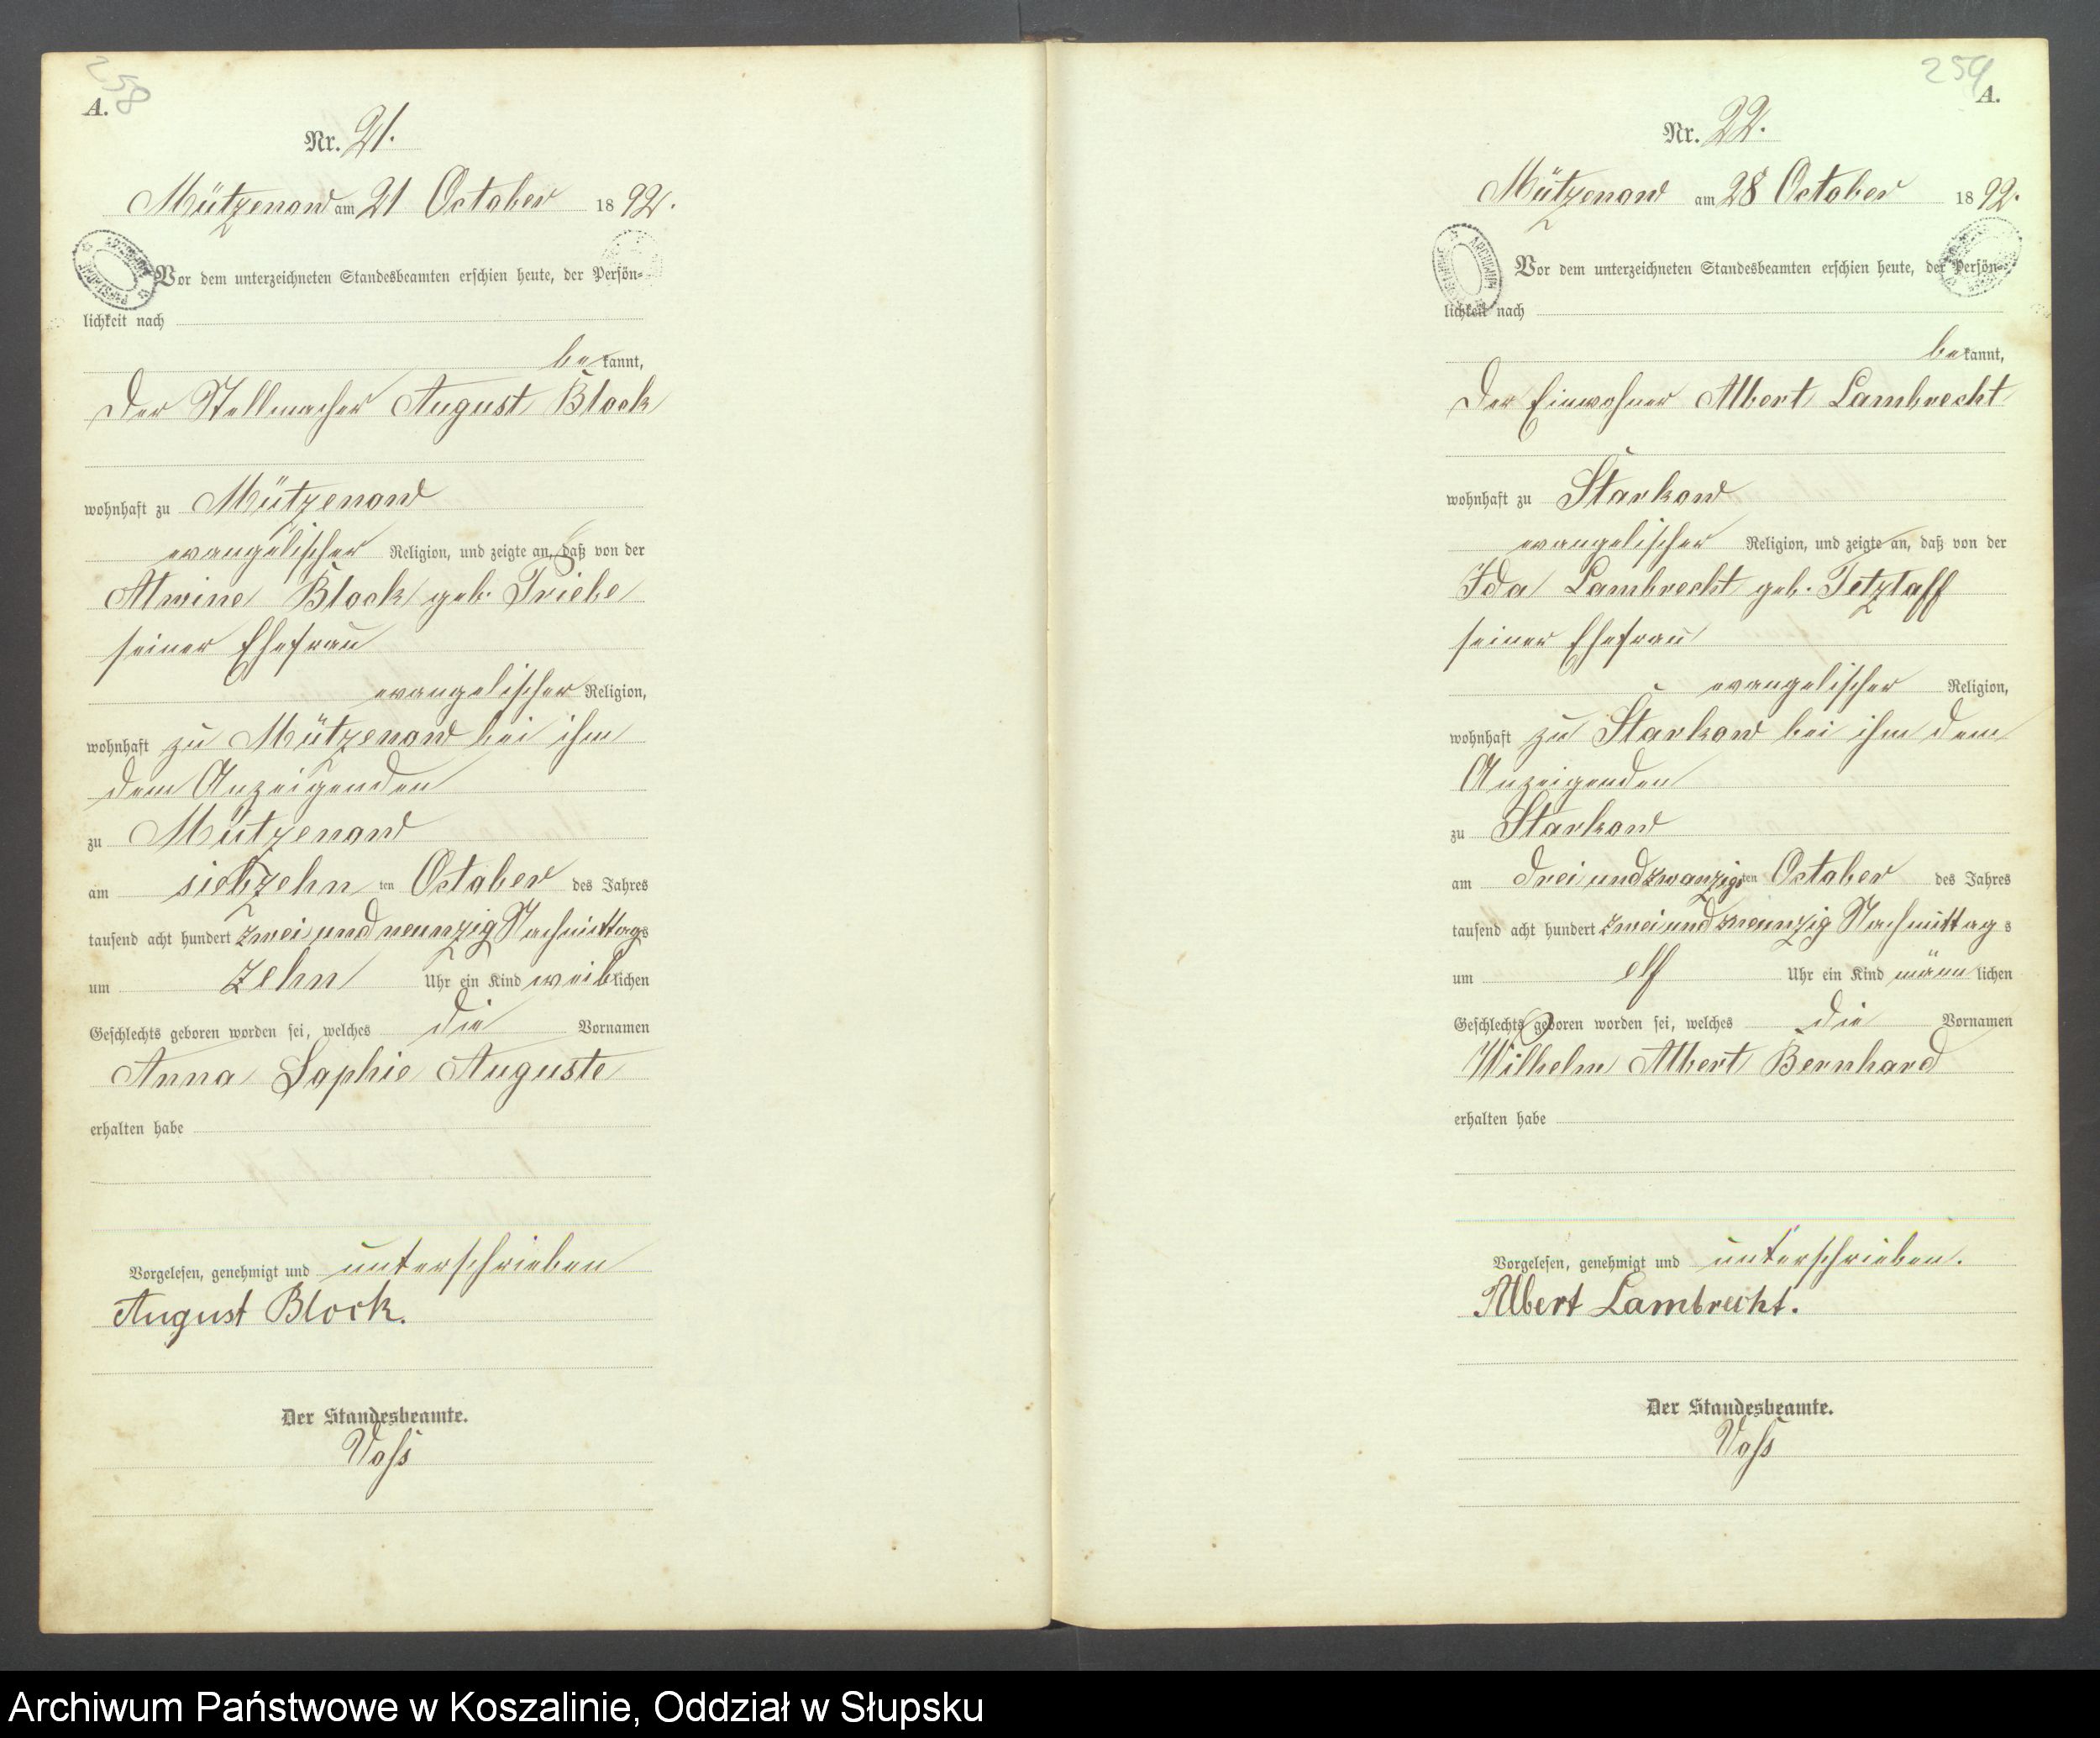 258
A.
Nr. 21.
Mützenow am 21 October 1892.
Vor dem unterzeichneten Standesbeamten erschien heute, der Persön-
lichkeit nach
bekannt,
der Stellmacher August Block
wohnhaft zu Mützenow
evangelischer Religion, und zeigte an, daß von der
Alwine Block geb. Triebe
seiner Ehefrau
evangelischer Religion,
wohnhaft zu Mützenow bei ihm
dem Anzeigenden
zu Mützenow
am siebzehn ten October des Jahres
tausend acht hundert zwei und neunzig Nachmittags
um zehn Uhr ein Kind weiblichen
Geschlechts geboren worden sei, welches die Vornamen
Anna Sophie Auguste
erhalten habe
Vorgelesen, genehmigt und unterschrieben
August Block.
Der Standesbeamte.
Voss
259
A.
Nr. 22.
Mützenow am 28 October 1892.
Vor dem unterzeichneten Standesbeamten erschien heute, der Persön-
lichkeit nach
bekannt,
der Einwohner Albert Lambrecht
wohnhaft zu Starkow
evangelischer Religion, und zeigte an, daß von der
Ida Lambrecht geb. Tetzlaff
seiner Ehefrau
evangelischer Religion,
wohnhaft zu Starkow bei ihm dem
Anzeigenden
zu Starkow
am drei und zwanzigsten October des Jahres
tausend acht hundert zwei und neunzig Nachmittags
um elf Uhr ein Kind männlichen
Geschlechts geboren worden sei, welches die Vornamen
Wilhelm Albert Bernhard
erhalten habe
Vorgelesen, genehmigt und unterschrieben.
Albert Lambrecht.
Der Standesbeamte.
Voss
Archiwum Państwowe w Koszalinie, Oddział w Słupsku